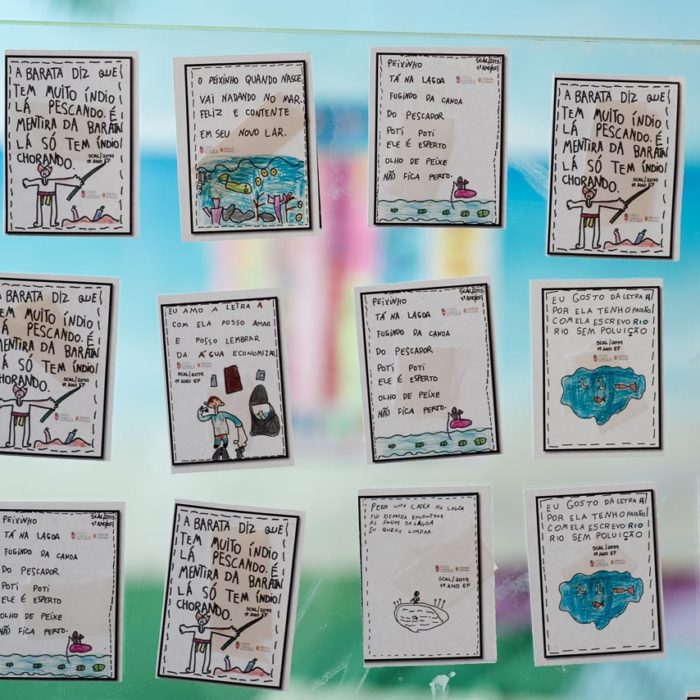 A BARATA DIZ QUE
TEM MUITO ÍNDIO
LÁ PESCANDO. É
MENTIRA DA BARATA
LÁ SÓ TEM ÍNDIO
CHORANDO.
SCAL/2019
1º ANO EF
O PEIXINHO QUANDO NASCE,
VAI NADANDO NO MAR.
FELIZ E CONTENTE
EM SEU NOVO LAR.
PEIXINHO
SCAL/2019
1º ANO EF
TÁ NA LAGOA
FUGINDO DA CANOA
DO PESCADOR
POTI POTI
ELE É ESPERTO
OLHO DE PEIXE
NÃO FICA PERTO.
A BARATA DIZ QUE
TEM MUITO ÍNDIO
LÁ PESCANDO. É
MENTIRA DA BARATA
LÁ SÓ TEM ÍNDIO
CHORANDO.
SCAL/2019
1º ANO EF
A BARATA DIZ QUE
TEM MUITO ÍNDIO
LÁ PESCANDO. É
MENTIRA DA BARATA
LÁ SÓ TEM ÍNDIO
CHORANDO.
SCAL/2019
1º ANO EF
EU AMO A LETRA A
COM ELA POSSO AMAR
E POSSO LEMBRAR
DA ÁGUA ECONOMIZAR
SCAL/2019
1º ANO EF
PEIXINHO
SCAL/2019
1º ANO EF
TÁ NA LAGOA
FUGINDO DA CANOA
DO PESCADOR
POTI POTI
ELE É ESPERTO
OLHO DE PEIXE
NÃO FICA PERTO.
EU GOSTO DA LETRA R
POR ELA TENHO PAIXÃO
COM ELA ESCREVO RIO
RIO SEM POLUIÇÃO
SCAL/2019
1º ANO EF
PEIXINHO
SCAL/2019
1º ANO EF
TÁ NA LAGOA
FUGINDO DA CANOA
DO PESCADOR
POTI POTI
ELE É ESPERTO
OLHO DE PEIXE
NÃO FICA PERTO.
A BARATA DIZ QUE
TEM MUITO ÍNDIO
LÁ PESCANDO. É
MENTIRA DA BARATA
LÁ SÓ TEM ÍNDIO
CHORANDO.
SCAL/2019
1º ANO EF
PERDI UMA CAIXA NA LAGOA
FUI DEMAIS ENCONTRAR
AS ÁGUAS DA LAGOA
EU QUERO LIMPAR
SCAL/2019
1º ANO EF
EU GOSTO DA LETRA R
POR ELA TENHO PAIXÃO
COM ELA ESCREVO RIO
RIO SEM POLUIÇÃO
SCAL/2019
1º ANO EF